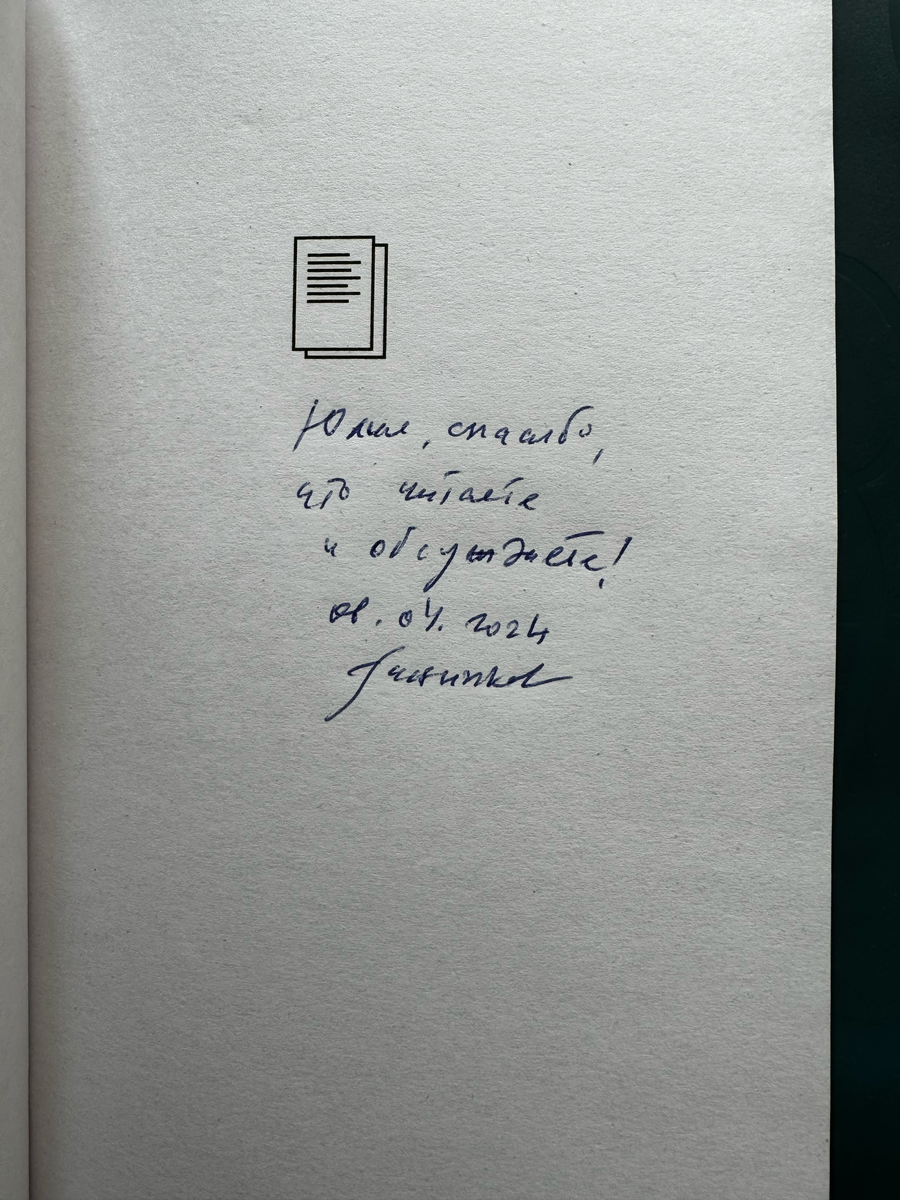 Юлия, спасибо,
что читаете
и обсуждаете!
08.04.2024